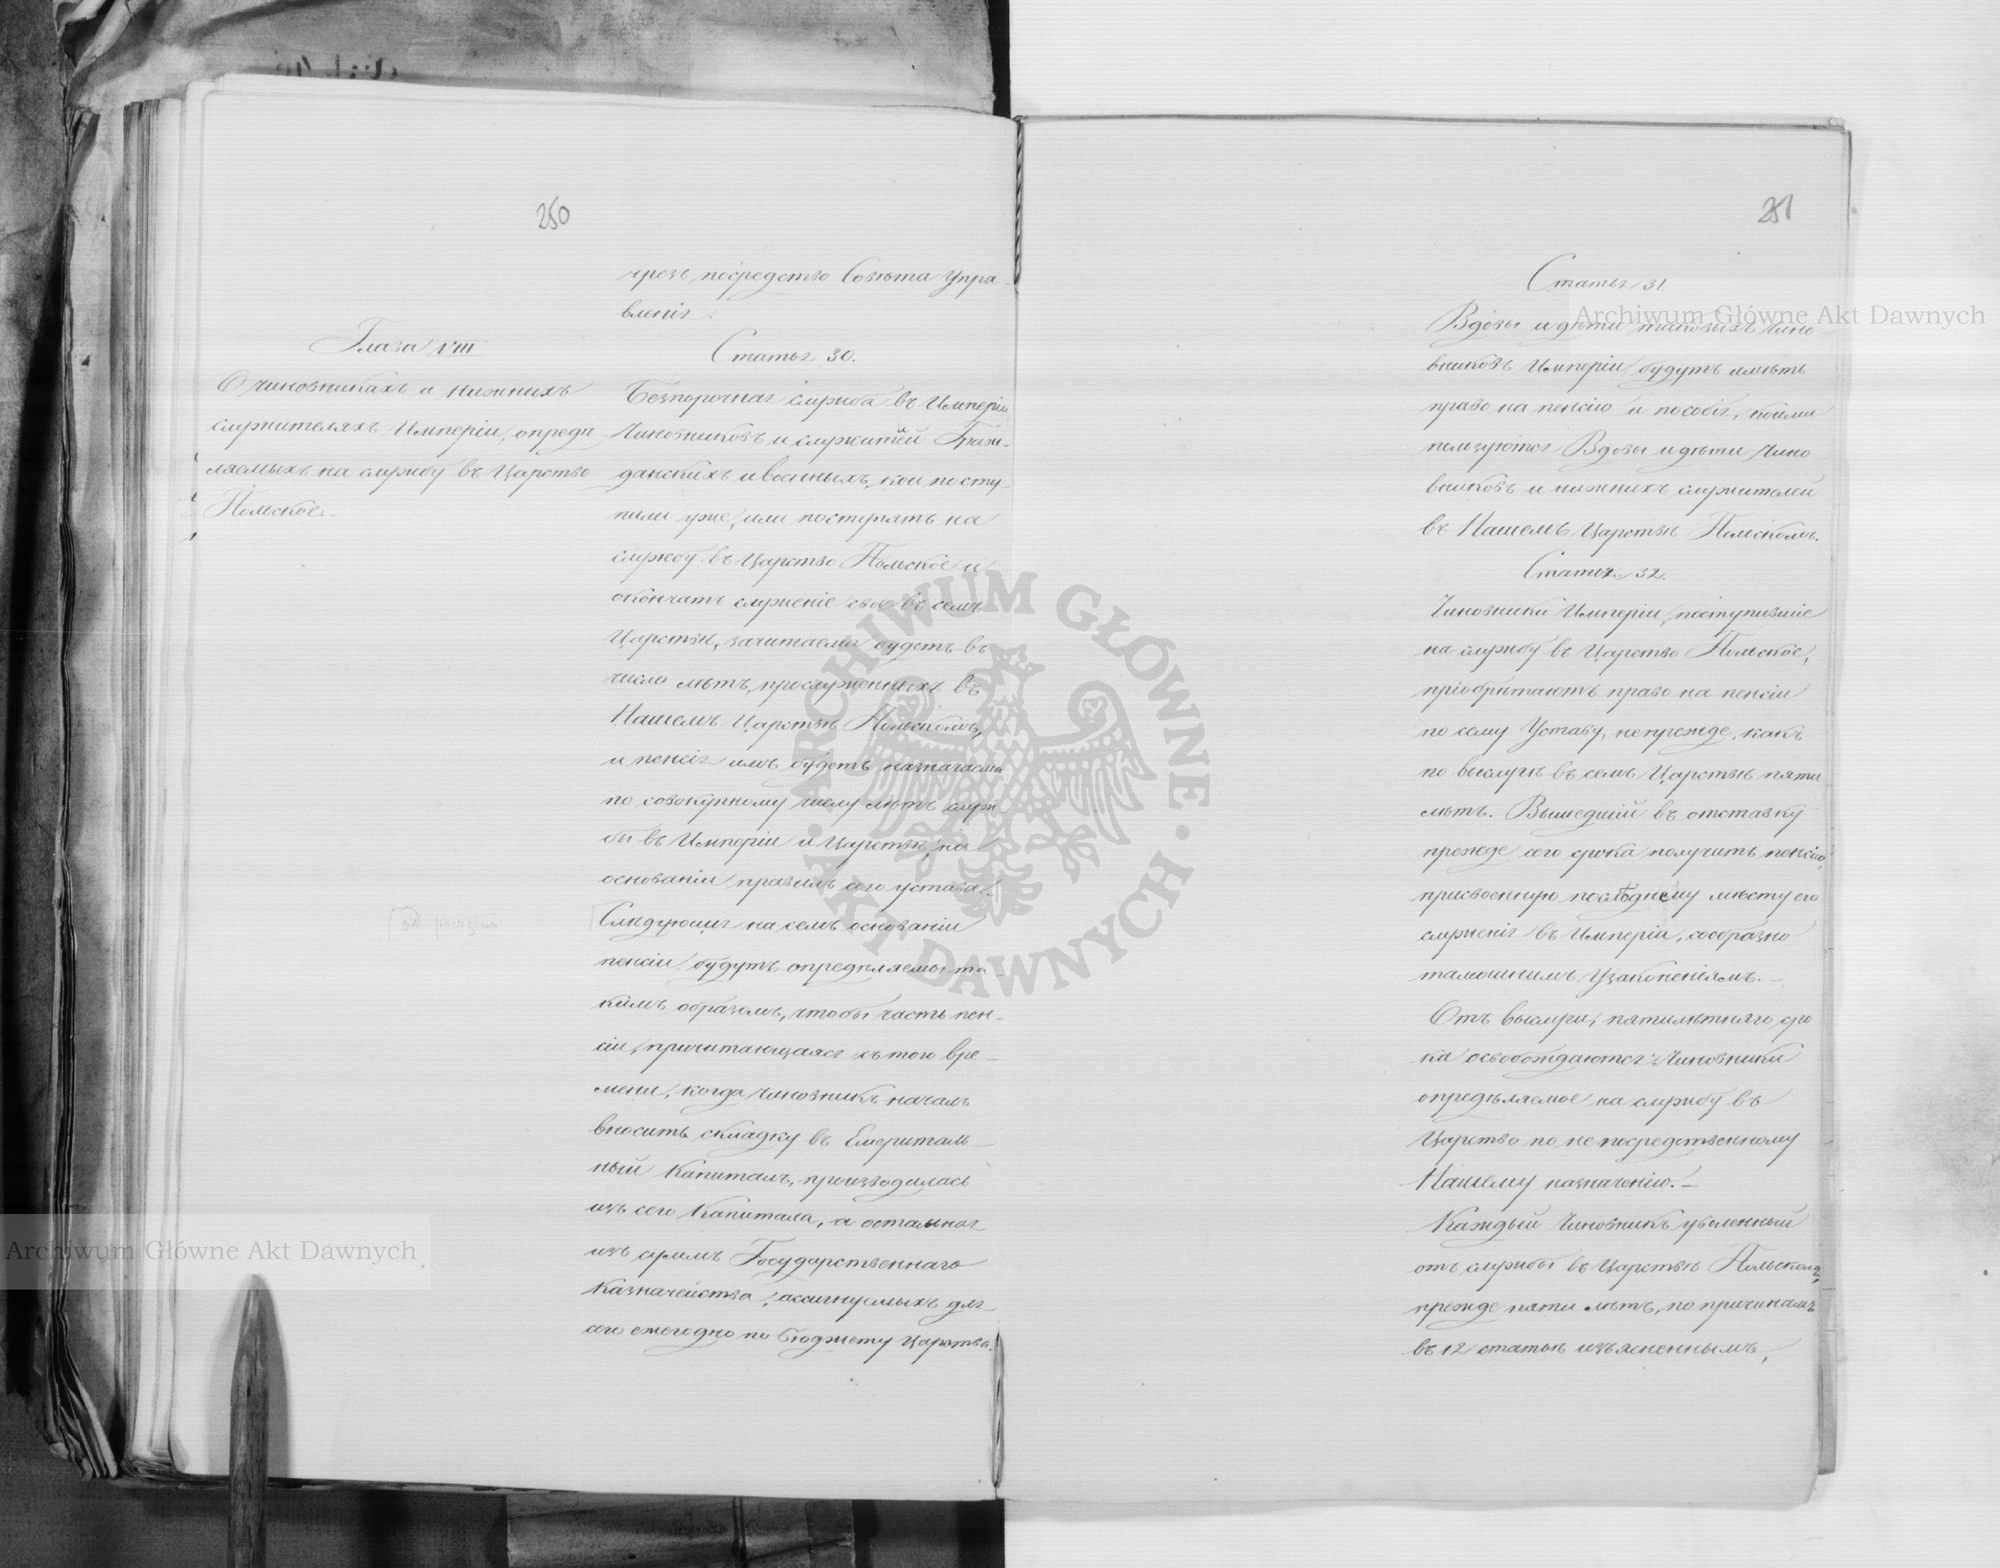 250
чрезъ посредство Совѣта Упра-
вленія.
Глава VIII
О чиновникахъ и нижнихъ
служителяхъ Имперіи, опредѣ
ляемыхъ на службу въ Царство
Польское.
Статья 30.
Безпорочная служба въ Имперіи
Чиновниковъ и служителей Граж-
данскихъ и военныхъ, кои посту-
пили уже, или поступятъ на
службу въ Царство Польское и
окончатъ служеніе свое въ семъ
Царствѣ, зачитаема будетъ въ
число лѣтъ, прослуженныхъ въ
Нашемъ Царствѣ Польскомъ,
и пенсія имъ будетъ назначаема
по совокупному числу лѣтъ служ-
бы въ Имперіи и Царствѣ, на
основаніи правилъ сего устава.
Слѣдующія на семъ основаніи
пенсіи будутъ опредѣляемы та-
кимъ образомъ, чтобы часть пен-
сіи, причитающаяся съ того вре-
мени, когда чиновникъ началъ
вносить складку въ Емериталь-
ный Капиталъ, производилась
изъ сего Капитала, а остальная
изъ суммъ Государственнаго
Казначейства, ассигнуемыхъ для
сего ежегодно по Бюджету Царства.
251
Статья 31.
Вдовы и дѣти таковыхъ Чино-
вниковъ Имперіи будутъ имѣть
право на пенсію и пособія, коими
пользуются Вдовы и дѣти Чино-
вниковъ и нижнихъ служителей
въ Нашемъ Царствѣ Польскомъ.
Статья 32.
Чиновники Имперіи, поступившіе
на службу въ Царство Польское,
пріобрѣтаютъ право на пенсіи
по сему Уставу, не прежде, какъ
по выслугѣ въ семъ Царствѣ пяти
лѣтъ. Вышедшій въ отставку
прежде сего срока получитъ пенсію,
присвоенную послѣднему мѣсту его
служенія въ Имперіи, сообразно
тамошнимъ Узаконеніямъ.—
Отъ выслуги, пятилѣтняго сро-
ка освобождаются Чиновники
опредѣляемые на службу въ
Царство по непосредственному
Нашему назначенію.—
Каждый Чиновникъ уволенный
отъ службы въ Царствѣ Польскомъ,
прежде пяти лѣтъ, по причинамъ
въ 12 статьѣ изъясненнымъ,
Archiwum Główne Akt Dawnych
Archiwum Główne Akt Dawnych
ARCHIWUM GŁÓWNE · AKT DAWNYCH ·